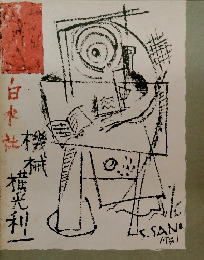 白水社
機械
横光利一
S. SANO
1931